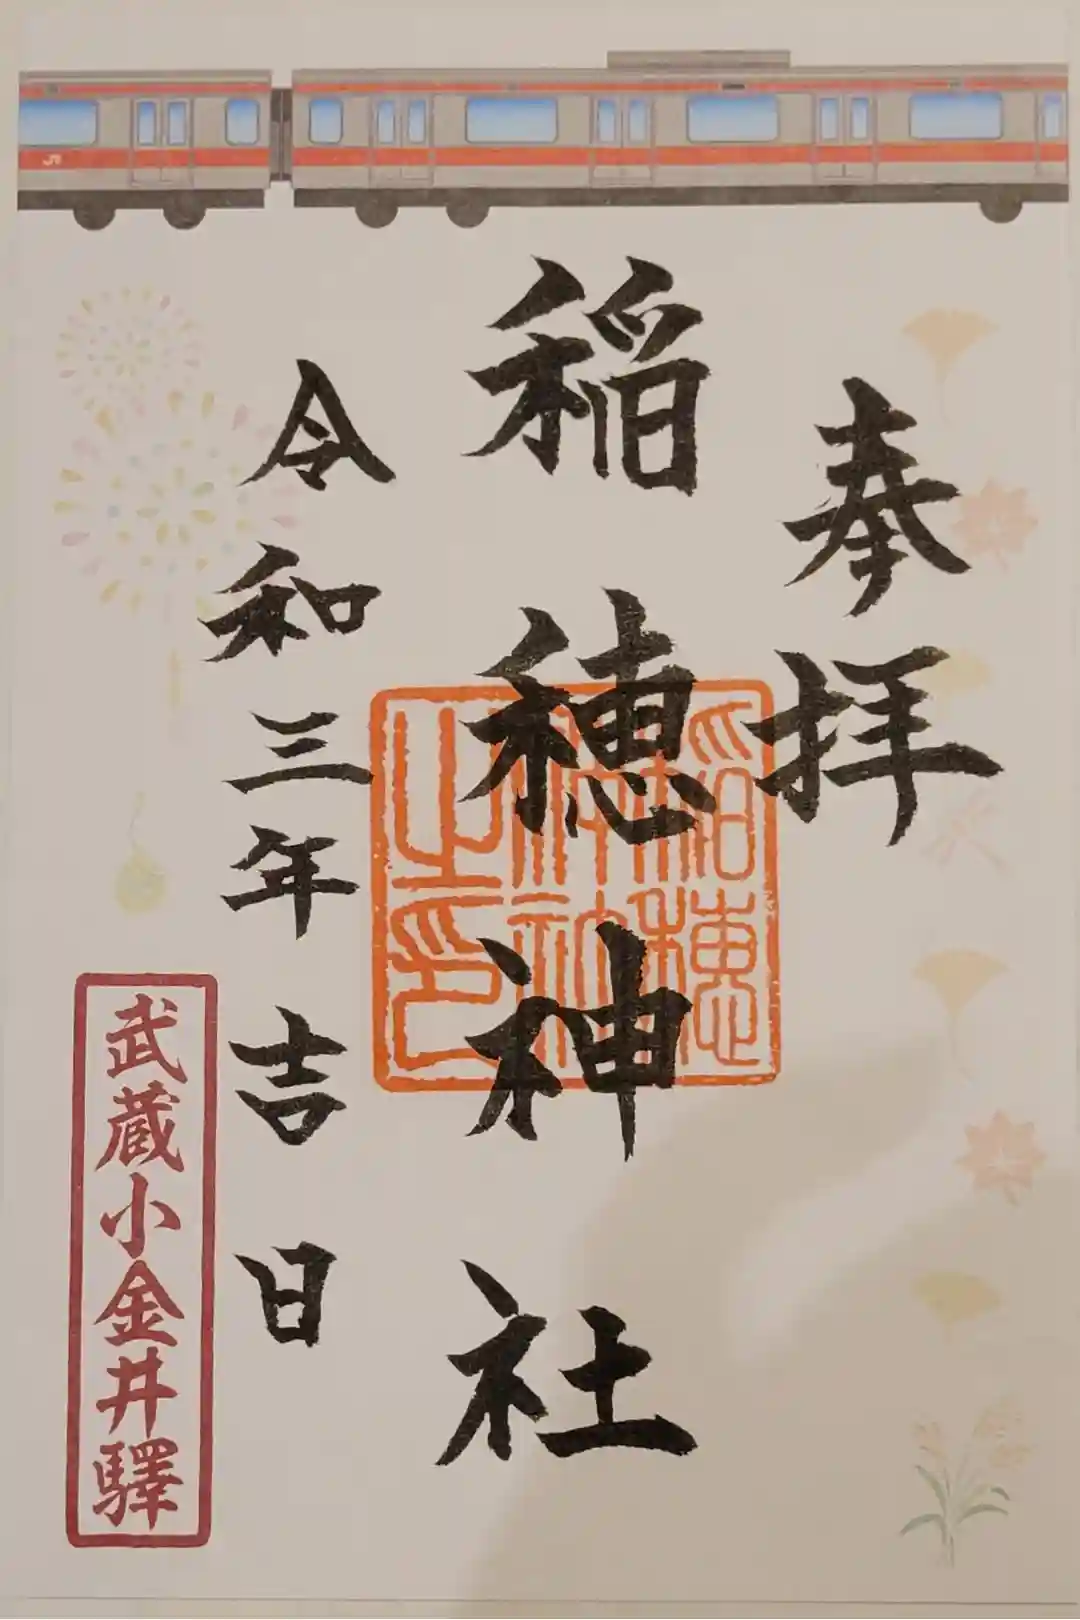 奉拝
稲穂神社
稲穂神社之印
令和三年吉日
武蔵小金井驛
JR